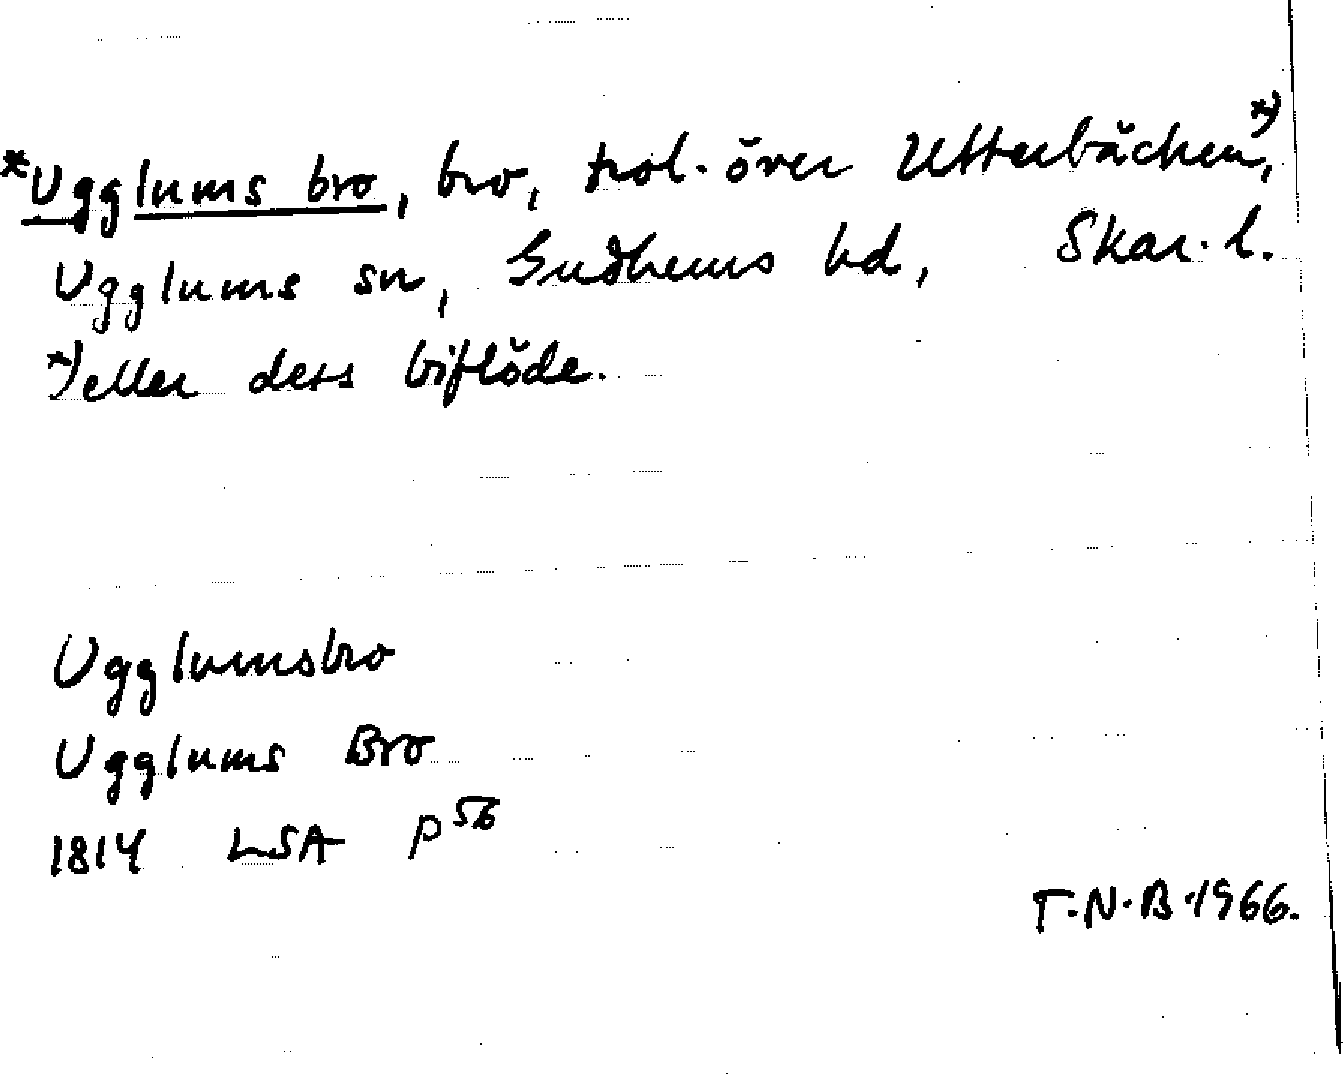 *Ugglums bro, bro, trol. över Utterbäcken*),
Ugglums sn, Gudhems hd, Skar. l.
*) eller dess biflöde.
Ugglumsbro
Ugglums Bro
1814 LSA P 56
T.N.B. 1966.